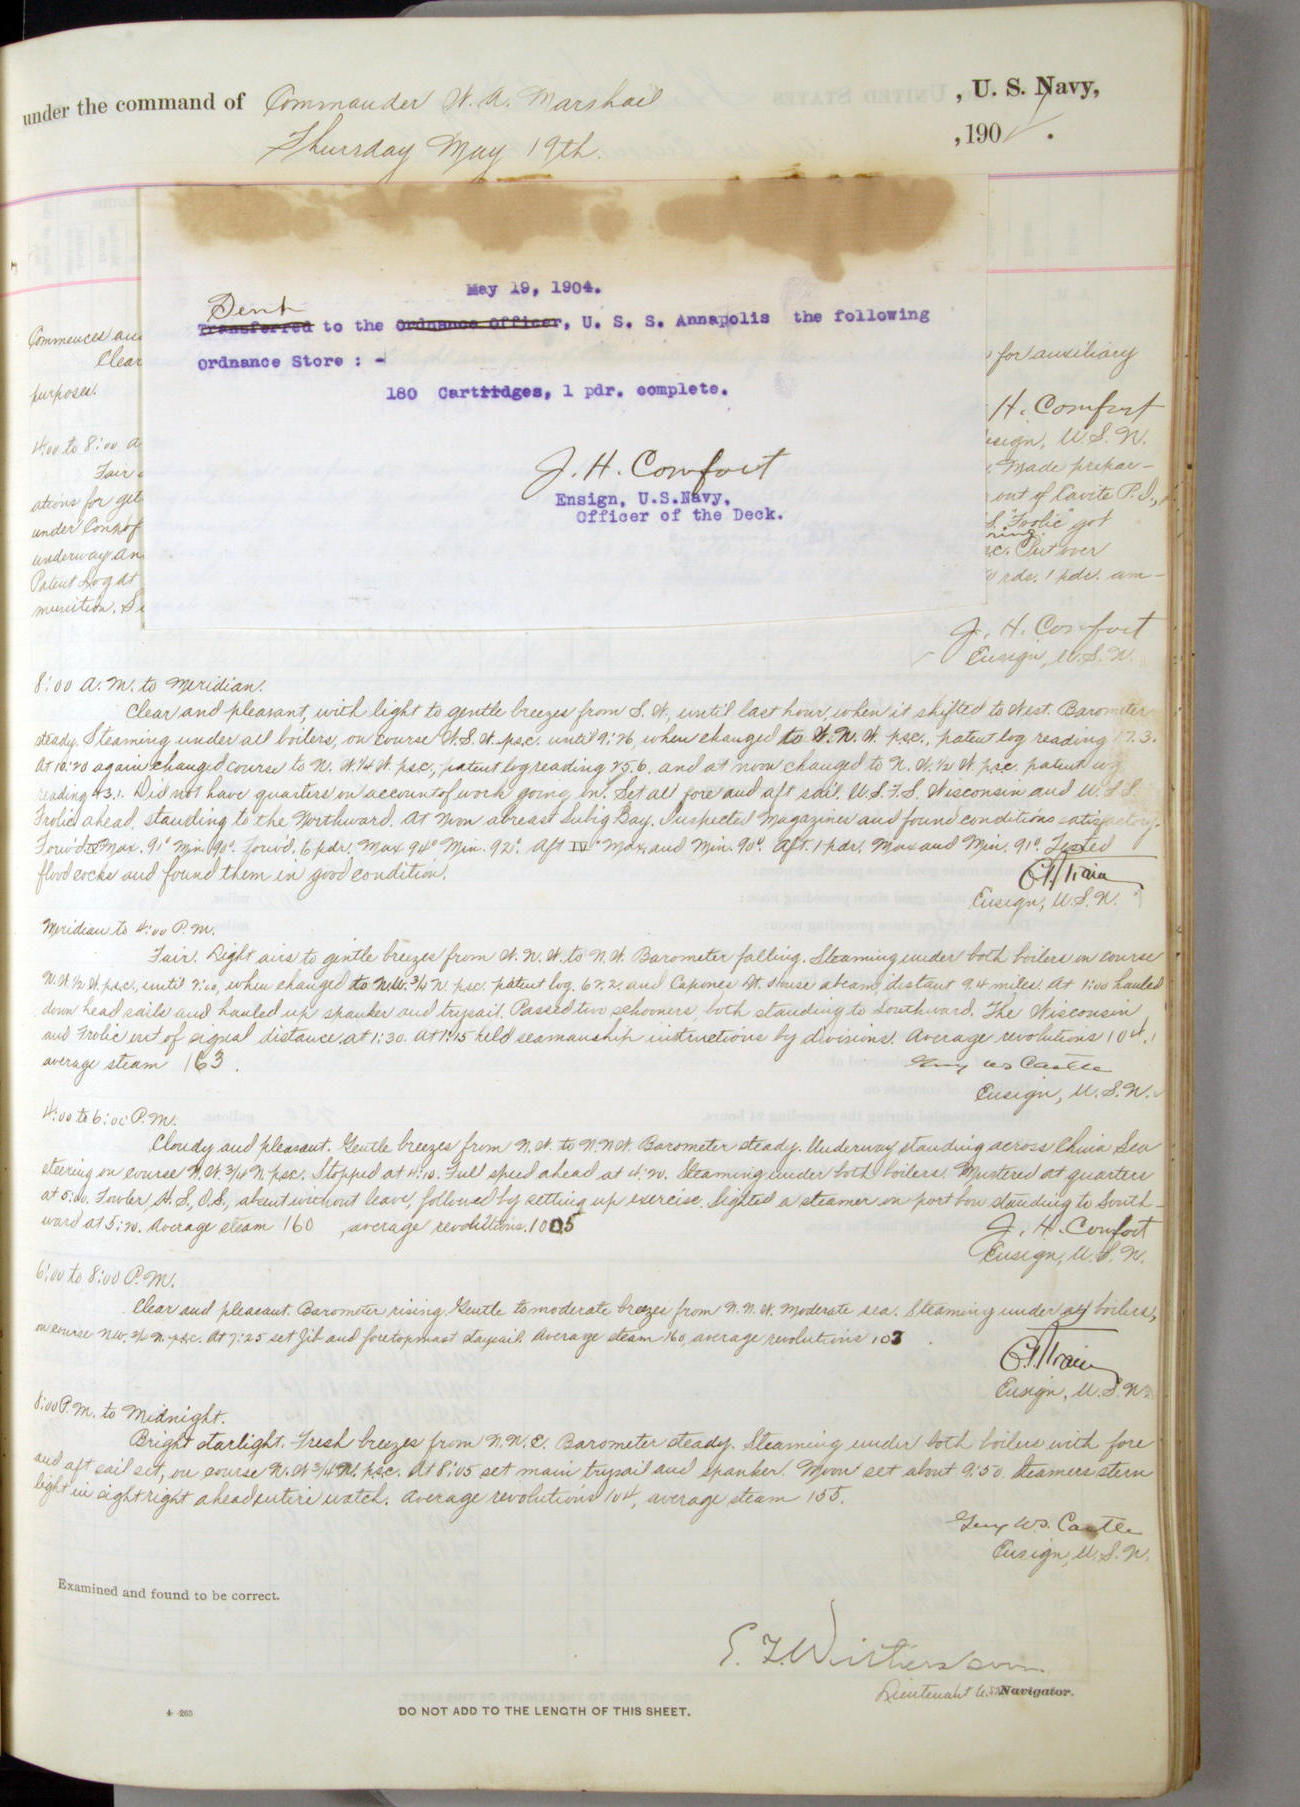 under the command of Commander W. A. Marshall , U. S. Navy,
Thursday May 19th. , 1904.
May 19, 1904.
Sent
Transferred to the Ordnance Officer, U. S. S. Annapolis the following
Ordnance Store : -
180 Cartridges, 1 pdr. complete.
J. H. Comfort
Ensign, U.S.Navy,
Officer of the Deck.
Commences and
Clear for auxiliary
purposes.
J. H. Comfort
Ensign, U. S. N.
4:00 to 8:00 A
Fair Made prepar-
ations for get out of Cavite P.I.,
under Conn of S. "Frolic" got
underway an
p.s.c. Put over
Patent Log at rds. 1 pdr. am-
munition.
J. H. Comfort
Ensign, U. S. N.
8:00 A. M. to Meridian.
Clear and pleasant, with light to gentle breezes from S. W, until last hour, when it shifted to West. Barometer
steady. Steaming under all boilers, on course W.S.W. p.s.c. until 9:26, when changed to W. N. W. p.s.c., patent log reading 17.3.
At 10:20 again changed course to N. W. 1/4 W. p.s.c., patent log reading 25.6. and at noon changed to N. W. 1/2 W. p.s.c. patent log
reading 43.1. Did not have quarters on account of work going on. Set all fore and aft sail. U.S.F.S. Wisconsin and U.S.S.
Frolic ahead, standing to the Northward. At Noon abreast Subig Bay. Inspected Magazines and found conditions satisfactory.
Forw'd IV" Max. 91° Min. 90°. Forw'd. 6 pdr. Max 94° Min. 92°. Aft IV" Max. and Min. 90°. Aft. 1 pdr. Max and Min. 91°. Tested
flood cocks and found them in good condition.
C R Train
Ensign, U. S. N.
Meridian to 4:00 P. M.
Fair. Light airs to gentle breezes from W. N. W. to N. W. Barometer falling. Steaming under both boilers on course
N. W. 1/2 W. p.s.c., until 2:00, when changed to N.W. 3/4 N. p.s.c. patent log, 62.2, and Capones Lt. House abeam, distant 9.4 miles. At 1:00 hauled
down head sails and hauled up spanker and trysail. Passed two schooners, both standing to Southward. The Wisconsin
and Frolic out of signal distance at 1:30. At 1:15 held seamanship instructions by divisions. Average revolutions 104,
average steam 163.
Guy W. S. Castle
Ensign, U. S. N.
4:00 to 6:00 P. M.
Cloudy and pleasant. Gentle breezes from N. W. to N.N.W. Barometer steady. Underway standing across China Sea
steering on course N.W. 3/4 N. p.s.c. Stopped at 4:10. Full speed ahead at 4:20. Steaming under both boilers. Mustered at quarters
at 5:00. Fowler, H. S, O.S., absent without leave, followed by setting up exercise. Sighted a steamer on port bow standing to South-
ward at 5:20. Average steam 160 , average revolutions. 1005
J. H. Comfort
Ensign, U. S. N.
6:00 to 8:00 P. M.
Clear and pleasant. Barometer rising. Gentle to moderate breezes from N. N. W. Moderate sea. Steaming under all boilers,
on course N.W. 3/4 N. p.s.c. At 7:25 set jib and foretopmast staysail. Average steam 160, average revolutions 103 .
C R Train
Ensign, U. S. N.
8:00 P. M. to Midnight.
Bright starlight. Fresh breezes from N. N. E. Barometer steady. Steaming under both boilers with fore
and aft sail set, on course N. W. 3/4 N. p.s.c. At 8:05 set main trysail and spanker. Moon set about 9:50. Steamers stern
light in sight right ahead entire watch. Average revolutions 104, average steam 155.
Guy W. S. Castle
Ensign, U. S. N.
Examined and found to be correct.
Lieutenant U.S.N. Navigator.
4—265
DO NOT ADD TO THE LENGTH OF THIS SHEET.